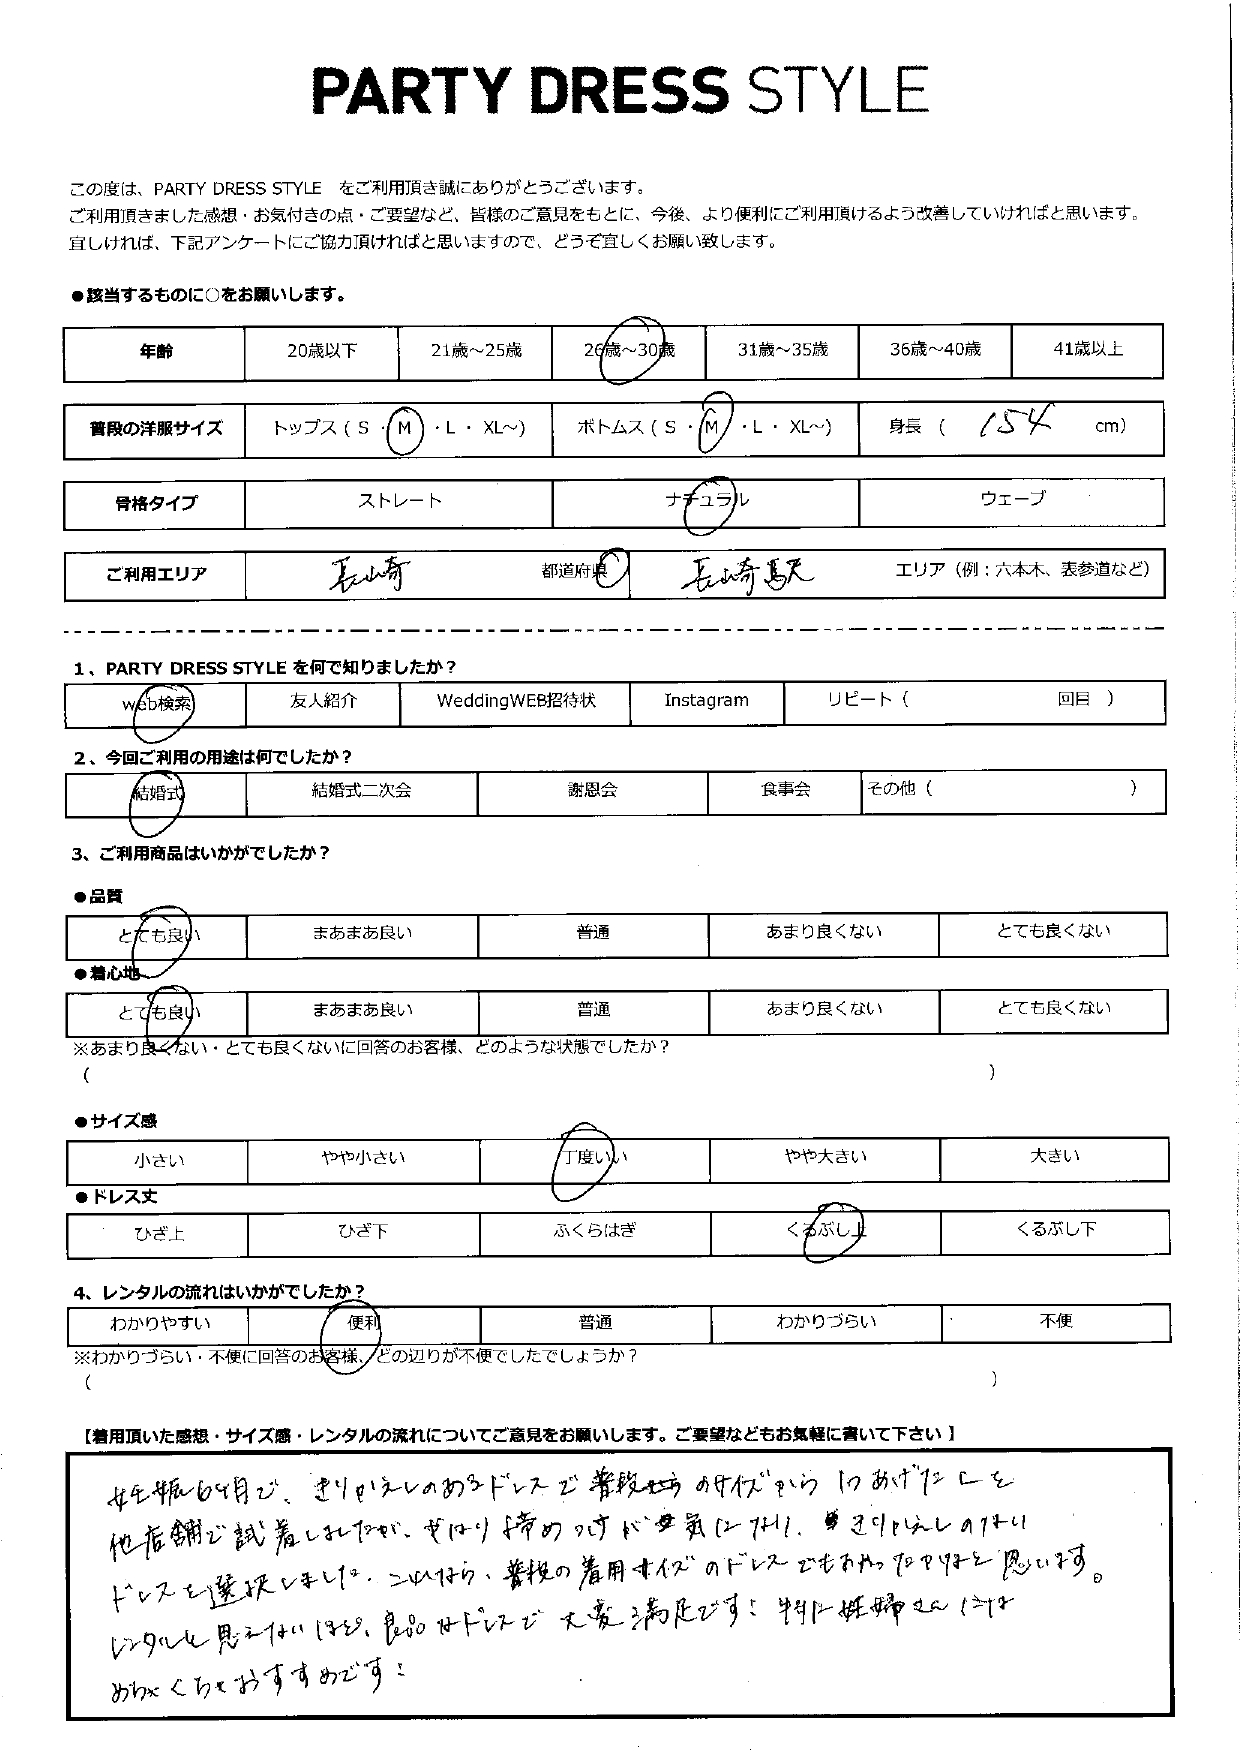 PARTY DRESS STYLE
この度は、PARTY DRESS STYLE をご利用頂き誠にありがとうございます。
ご利用頂きました感想・お気付きの点・ご要望など、皆様のご意見をもとに、今後、より便利にご利用頂けるよう改善していければと思います。
宜しければ、下記アンケートにご協力頂ければと思いますので、どうぞ宜しくお願い致します。
●該当するものに○をお願いします。
年齢 20歳以下 21歳～25歳 26歳～30歳 31歳～35歳 36歳～40歳 41歳以上
普段の洋服サイズ トップス ( S ・ M ・ L ・ XL～) ボトムス ( S ・ M ・ L ・ XL～) 身長 ( 154 cm)
骨格タイプ ストレート ナチュラル ウェーブ
ご利用エリア 長崎 都道府県 長崎駅 エリア（例：六本木、表参道など）
1、PARTY DRESS STYLE を何で知りましたか？
web検索 友人紹介 WeddingWEB招待状 Instagram リピート ( 回目 )
2、今回ご利用の用途は何でしたか？
結婚式 結婚式二次会 謝恩会 食事会 その他 ( )
3、ご利用商品はいかがでしたか？
●品質
とても良い まあまあ良い 普通 あまり良くない とても良くない
●着心地
とても良い まあまあ良い 普通 あまり良くない とても良くない
※あまり良くない・とても良くないに回答のお客様、どのような状態でしたか？
( )
●サイズ感
小さい やや小さい 丁度いい やや大きい 大きい
●ドレス丈
ひざ上 ひざ下 ふくらはぎ くるぶし上 くるぶし下
4、レンタルの流れはいかがでしたか？
わかりやすい 便利 普通 わかりづらい 不便
※わかりづらい・不便に回答のお客様、どの辺りが不便でしたでしょうか？
( )
【着用頂いた感想・サイズ感・レンタルの流れについてご意見をお願いします。ご要望などもお気軽に書いて下さい 】
妊娠6ヶ月で、きりかえしのあるドレスで普段のサイズから1つあげたLを
他店舗で試着しましたが、やはり締めつけが気になり、きりかえしのない
ドレスを選択しました。これなら、普段の着用サイズのドレスでもよかったかなと思います。
レンタルと思えないほど、良品なドレスで大変満足です！特に妊婦さんには
めちゃくちゃおすすめです！